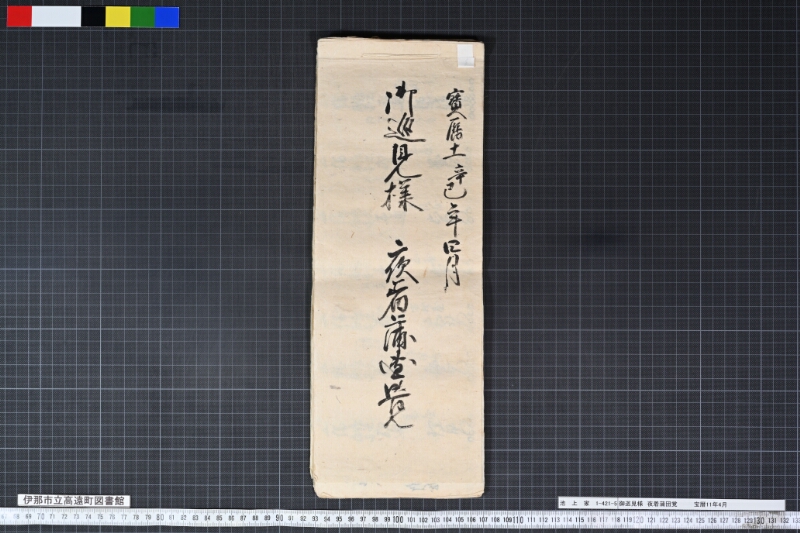 寶暦十一辛巳年四月
御巡見様 夜着蒲團覚
伊那市立高遠町図書館
池上家 1-421-5 御巡見様 夜着蒲団覚 宝暦11年4月